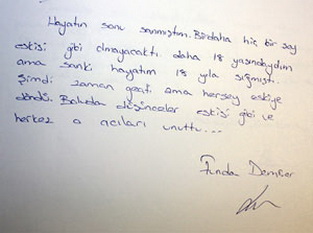 Hayatın sonu sanmıştım. Birdaha hiç bir şey
eskisi gibi olmayacaktı daha 18 yaşındaydım
ama sanki hayatım 18 yıla sığmıştı.
Şimdi zaman geçti ama herşey eskiye
döndü. Bakıda düşünceler eskisi gibi ve
herkez o acıları unuttu...
Funda Demirer